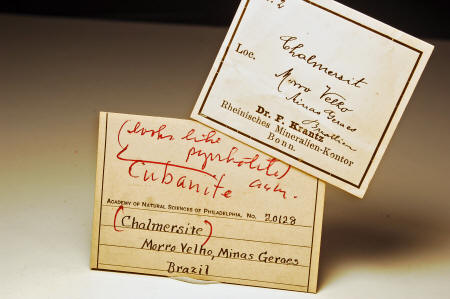 Chalmersit
Loc.
Morro Velho
Minas Geraes
Brasilien
Dr. F. Krantz
Rheinisches Mineralien-Kontor
Bonn.
(looks like
pyrrhotite)
Cubanite
ACADEMY OF NATURAL SCIENCES OF PHILADELPHIA, No. 20128
(Chalmersite)
Morro Velho, Minas Geraes
Brazil